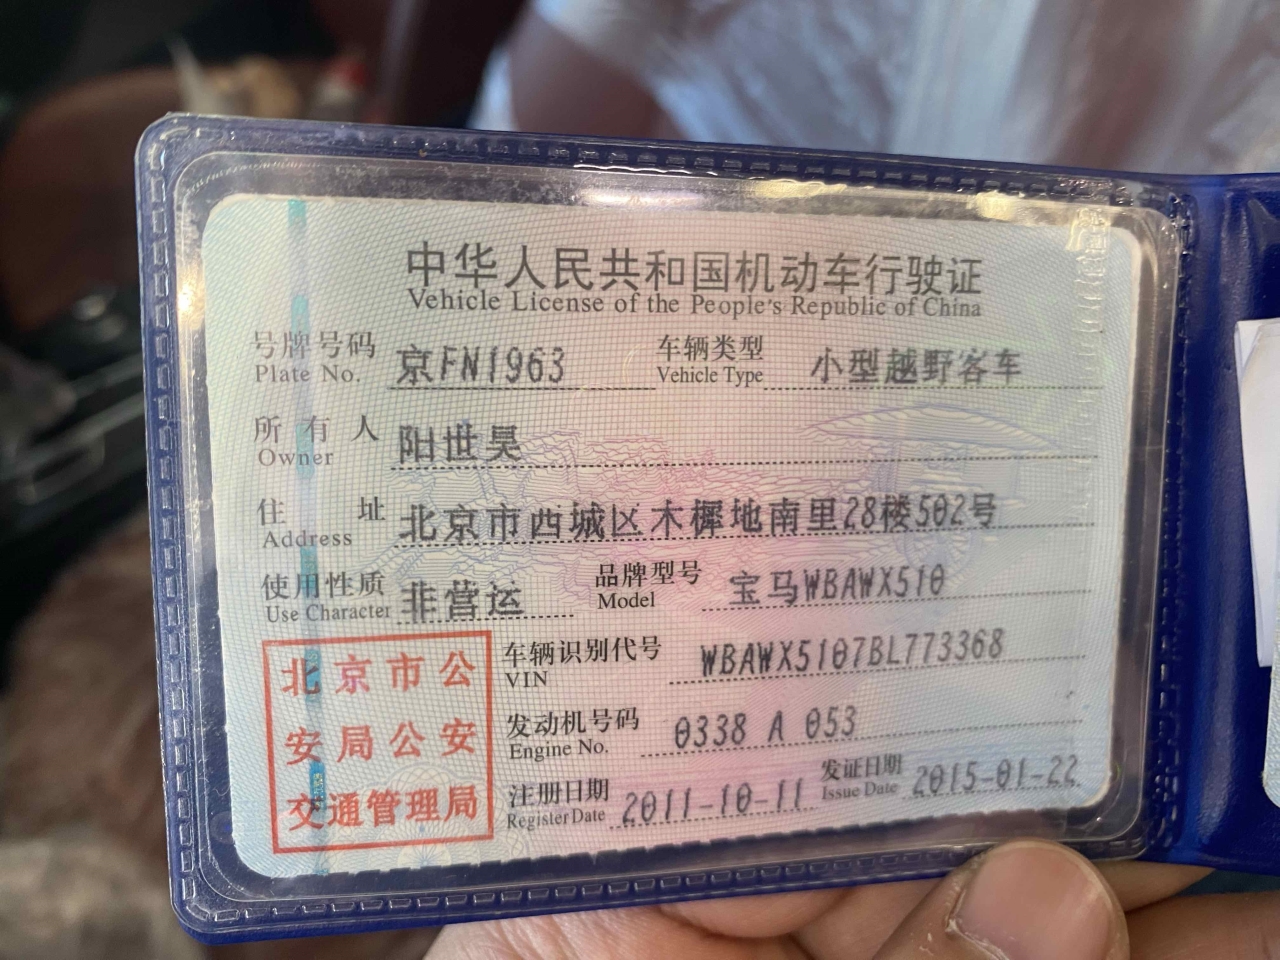 中华人民共和国机动车行驶证
Vehicle License of the People's Republic of China
号牌号码 京FN1963 车辆类型 小型越野客车
Plate No. Vehicle Type
所有人 阳世昊
Owner
住址 北京市西城区木樨地南里28楼502号
Address
使用性质 非营运 品牌型号 宝马WBAWX510
Use Character Model
北京市公
安局公安
交通管理局
车辆识别代号 WBAWX5107BL773368
VIN
发动机号码 0338 A 053
Engine No.
注册日期 2011-10-11 发证日期 2015-01-22
Register Date Issue Date